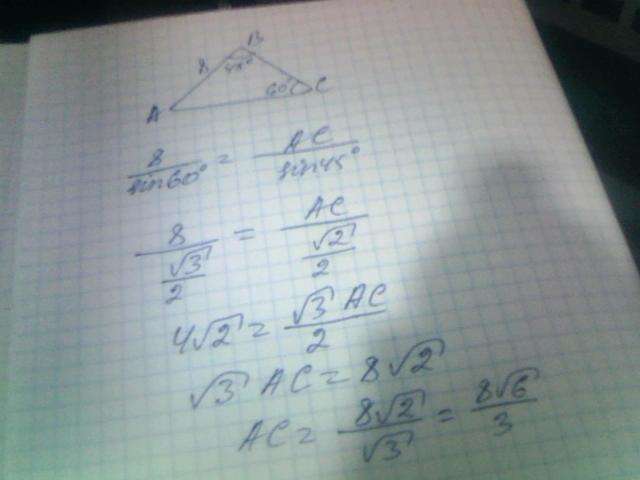 B
8 45°
60° C
A
8/sin60° = AC/sin45°
8/(√3/2) = AC/(√2/2)
4√2 = √3 AC/2
√3 AC = 8√2
AC = 8√2/√3 = 8√6/3